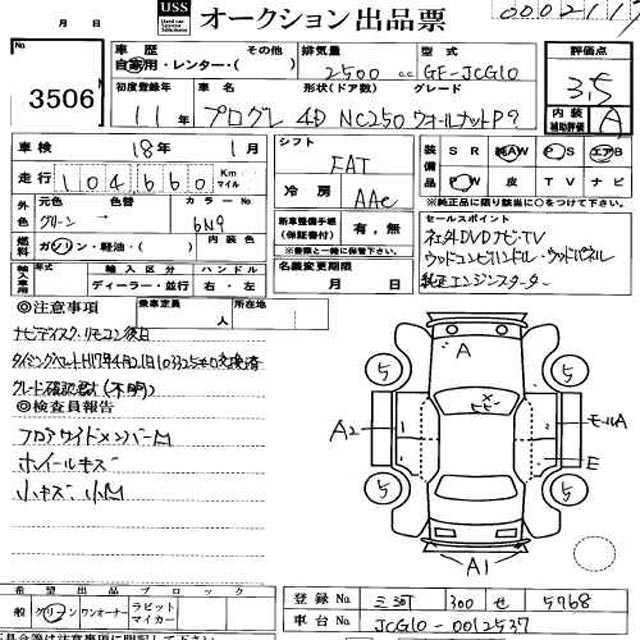 USS
Used car System Solutions
オークション出品票
0002117
月 日
No. 3506
車歴
自家用・レンター・( )
その他
排気量
2500 cc
型式
GF-JCG10
評価点
3.5
初度登録年
11年
車名
プログレ
形状(ドア数)
4D
グレード
NC250 ウォールナットP?
内装補助評価
A
車検 18年 1月
走行 104,660 Km マイル
外色
元色
グリーン
色替
→
カラーNo.
6N9
燃料
ガソリン・軽油・( )
内装色
輸入車用
年式
輸入区分
ディーラー・並行
ハンドル
右・左
シフト
FAT
冷房
AAC
新車整備手帳(保証書付)
有,無
※書類と一緒に保管下さい。
名義変更期限
月 日
装備品
SR 純AW PS エアB
PW 皮 TV ナビ
※純正品に限り該当に○をつけて下さい。
セールスポイント
社外DVDナビ・TV
ウッドコンビハンドル・ウッドパネル
純正エンジンスターター
◎注意事項
乗車定員
人
所在地
ナビディスク・リモコン後日
タイミングベルトH17年4月21日103325キロ交換済
グレード確認要(不明)
◎検査員報告
フロアサイドメンバーM
ホイールキズ
小キズ 小M
A
5
5
A2
モールA
E
5
5
A1
希望出品ブロック
一般 グリーン ワンオーナー ラビットマイカー
登録No. 三河 300 せ 5768
車台No. JCG10-0012537